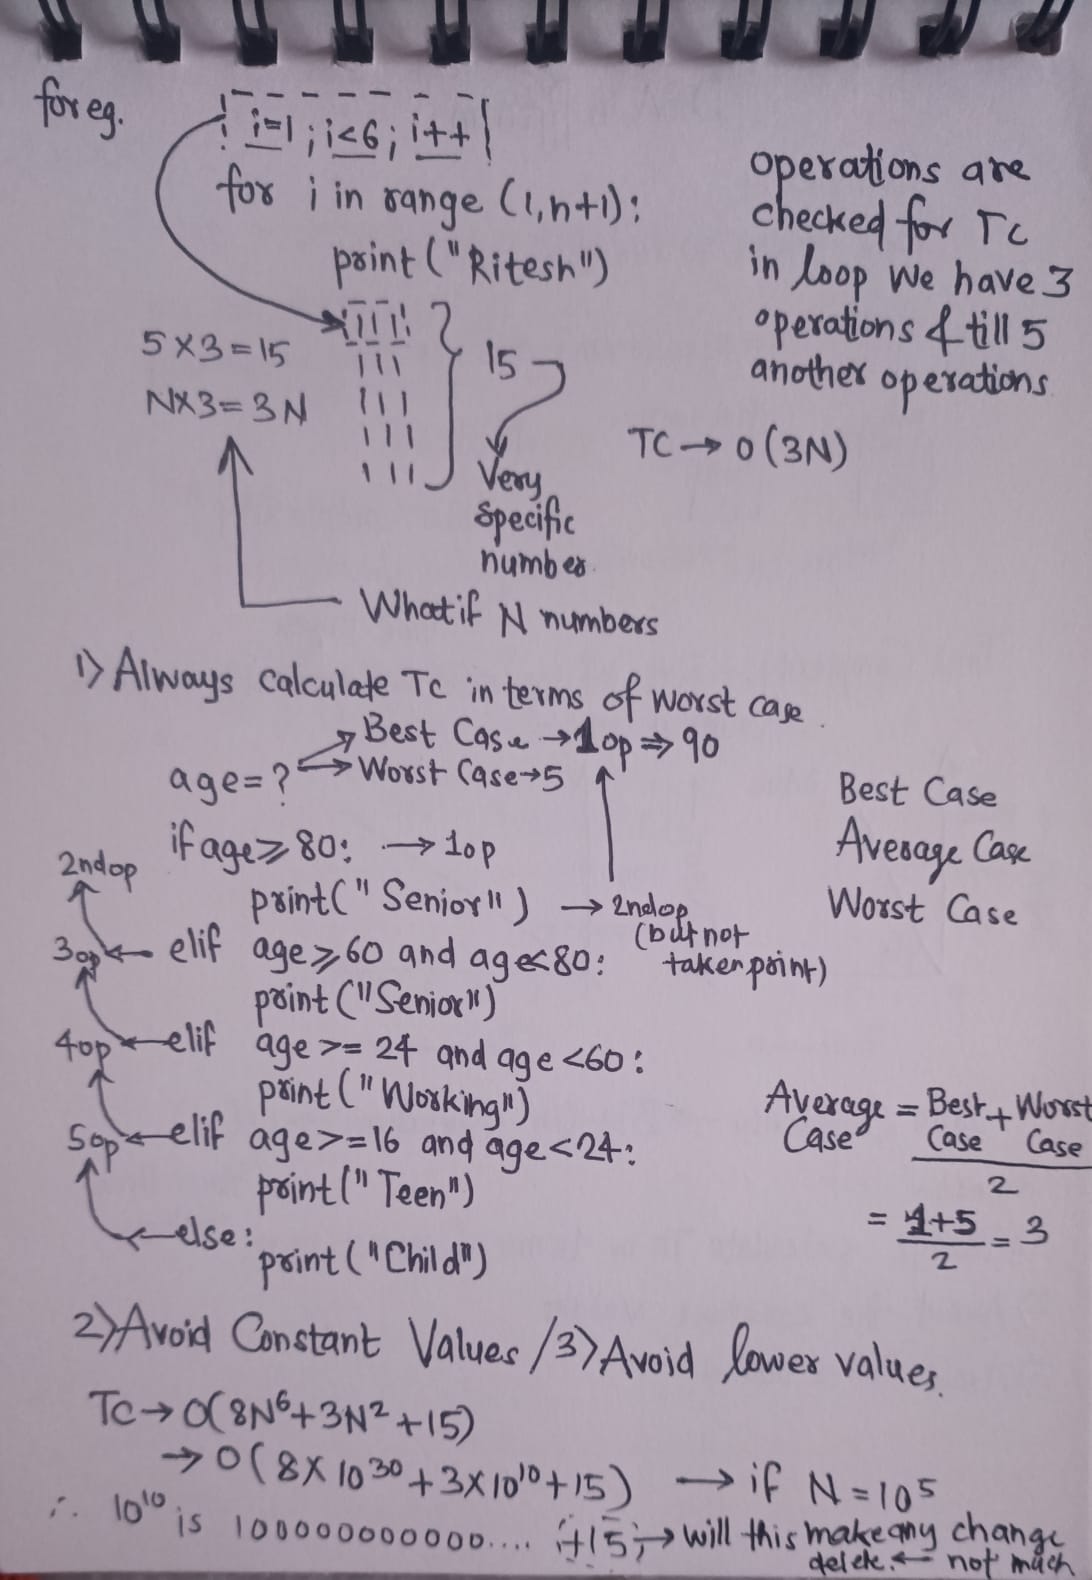 for eg.
i=1 ; i<6 ; i++
for i in range (1,n+1):
print ("Ritesh")
operations are
checked for TC
in loop we have 3
operations & till 5
another operations
5 X 3 = 15
NX3 = 3N
15
Very
specific
number.
TC → O(3N)
What if N numbers
1) Always calculate TC in terms of worst case.
age=?
Best Case → 1op ⇒ 90
Worst Case → 5
Best Case
Average Case
Worst Case
if age ≥ 80: → 1op
print(" Senior") → 2ndop
(but not
taken point)
2ndop
3op ← elif age ≥ 60 and age<80:
print ("Senior")
4op ← elif age >= 24 and age <60:
print (" Working")
5op ← elif age >=16 and age <24:
print (" Teen")
← else:
print ("Child")
Average Case = Best Case + Worst Case
2
= 1+5 = 3
2
2) Avoid Constant Values / 3) Avoid lower values.
TC → O(8N⁶+3N²+15)
→ O(8X10³⁰+3X10¹⁰+15) → if N = 10⁵
∴ 10¹⁰ is 100000000000.... +15 → will this make any change
delete. ← not much